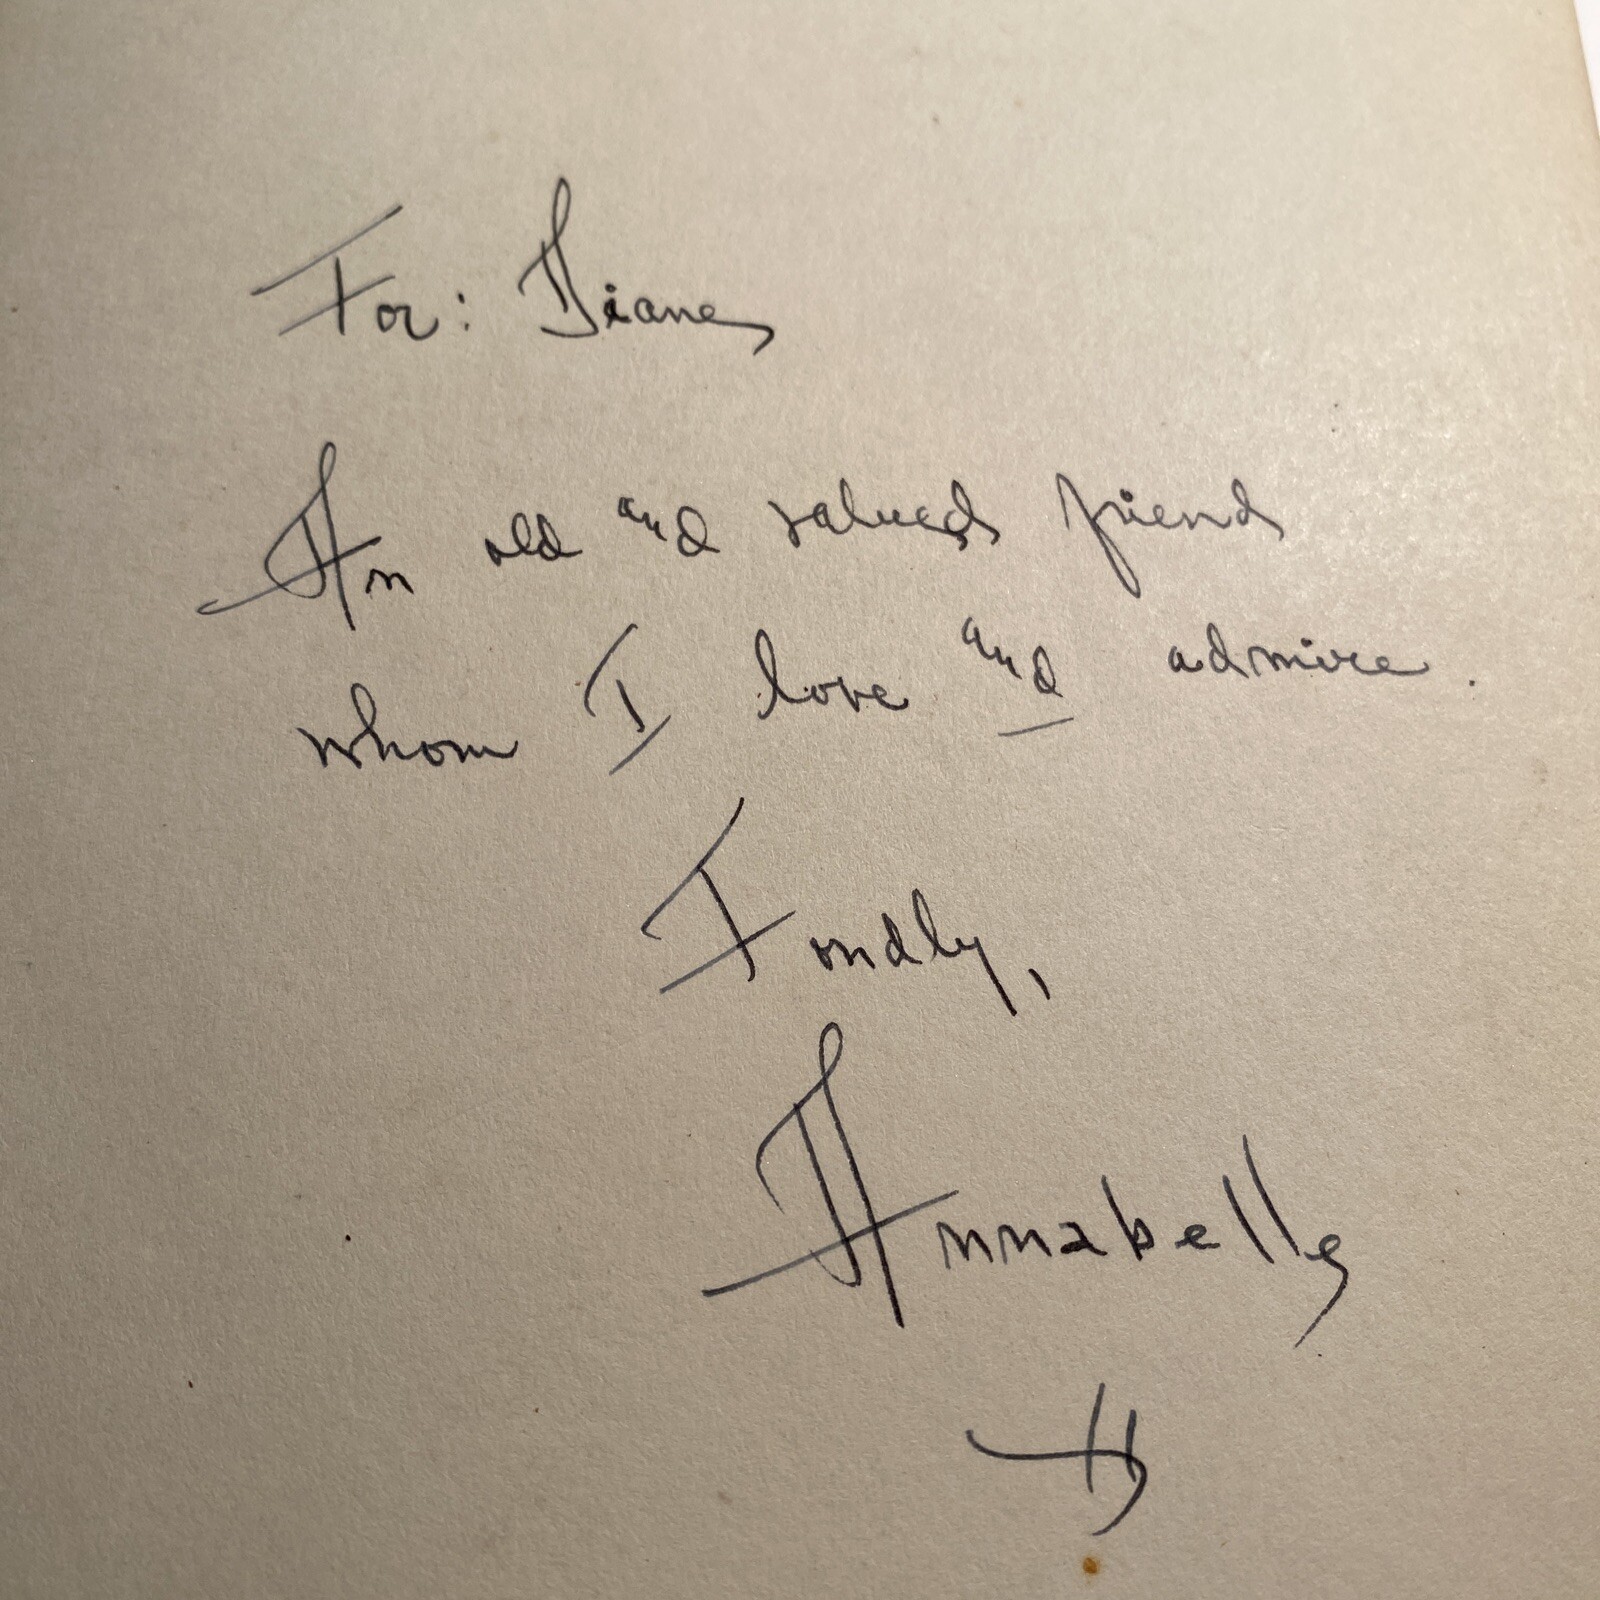 For: Diane
An old and valued friend
whom I love and admire.
Fondly,
Annabelle